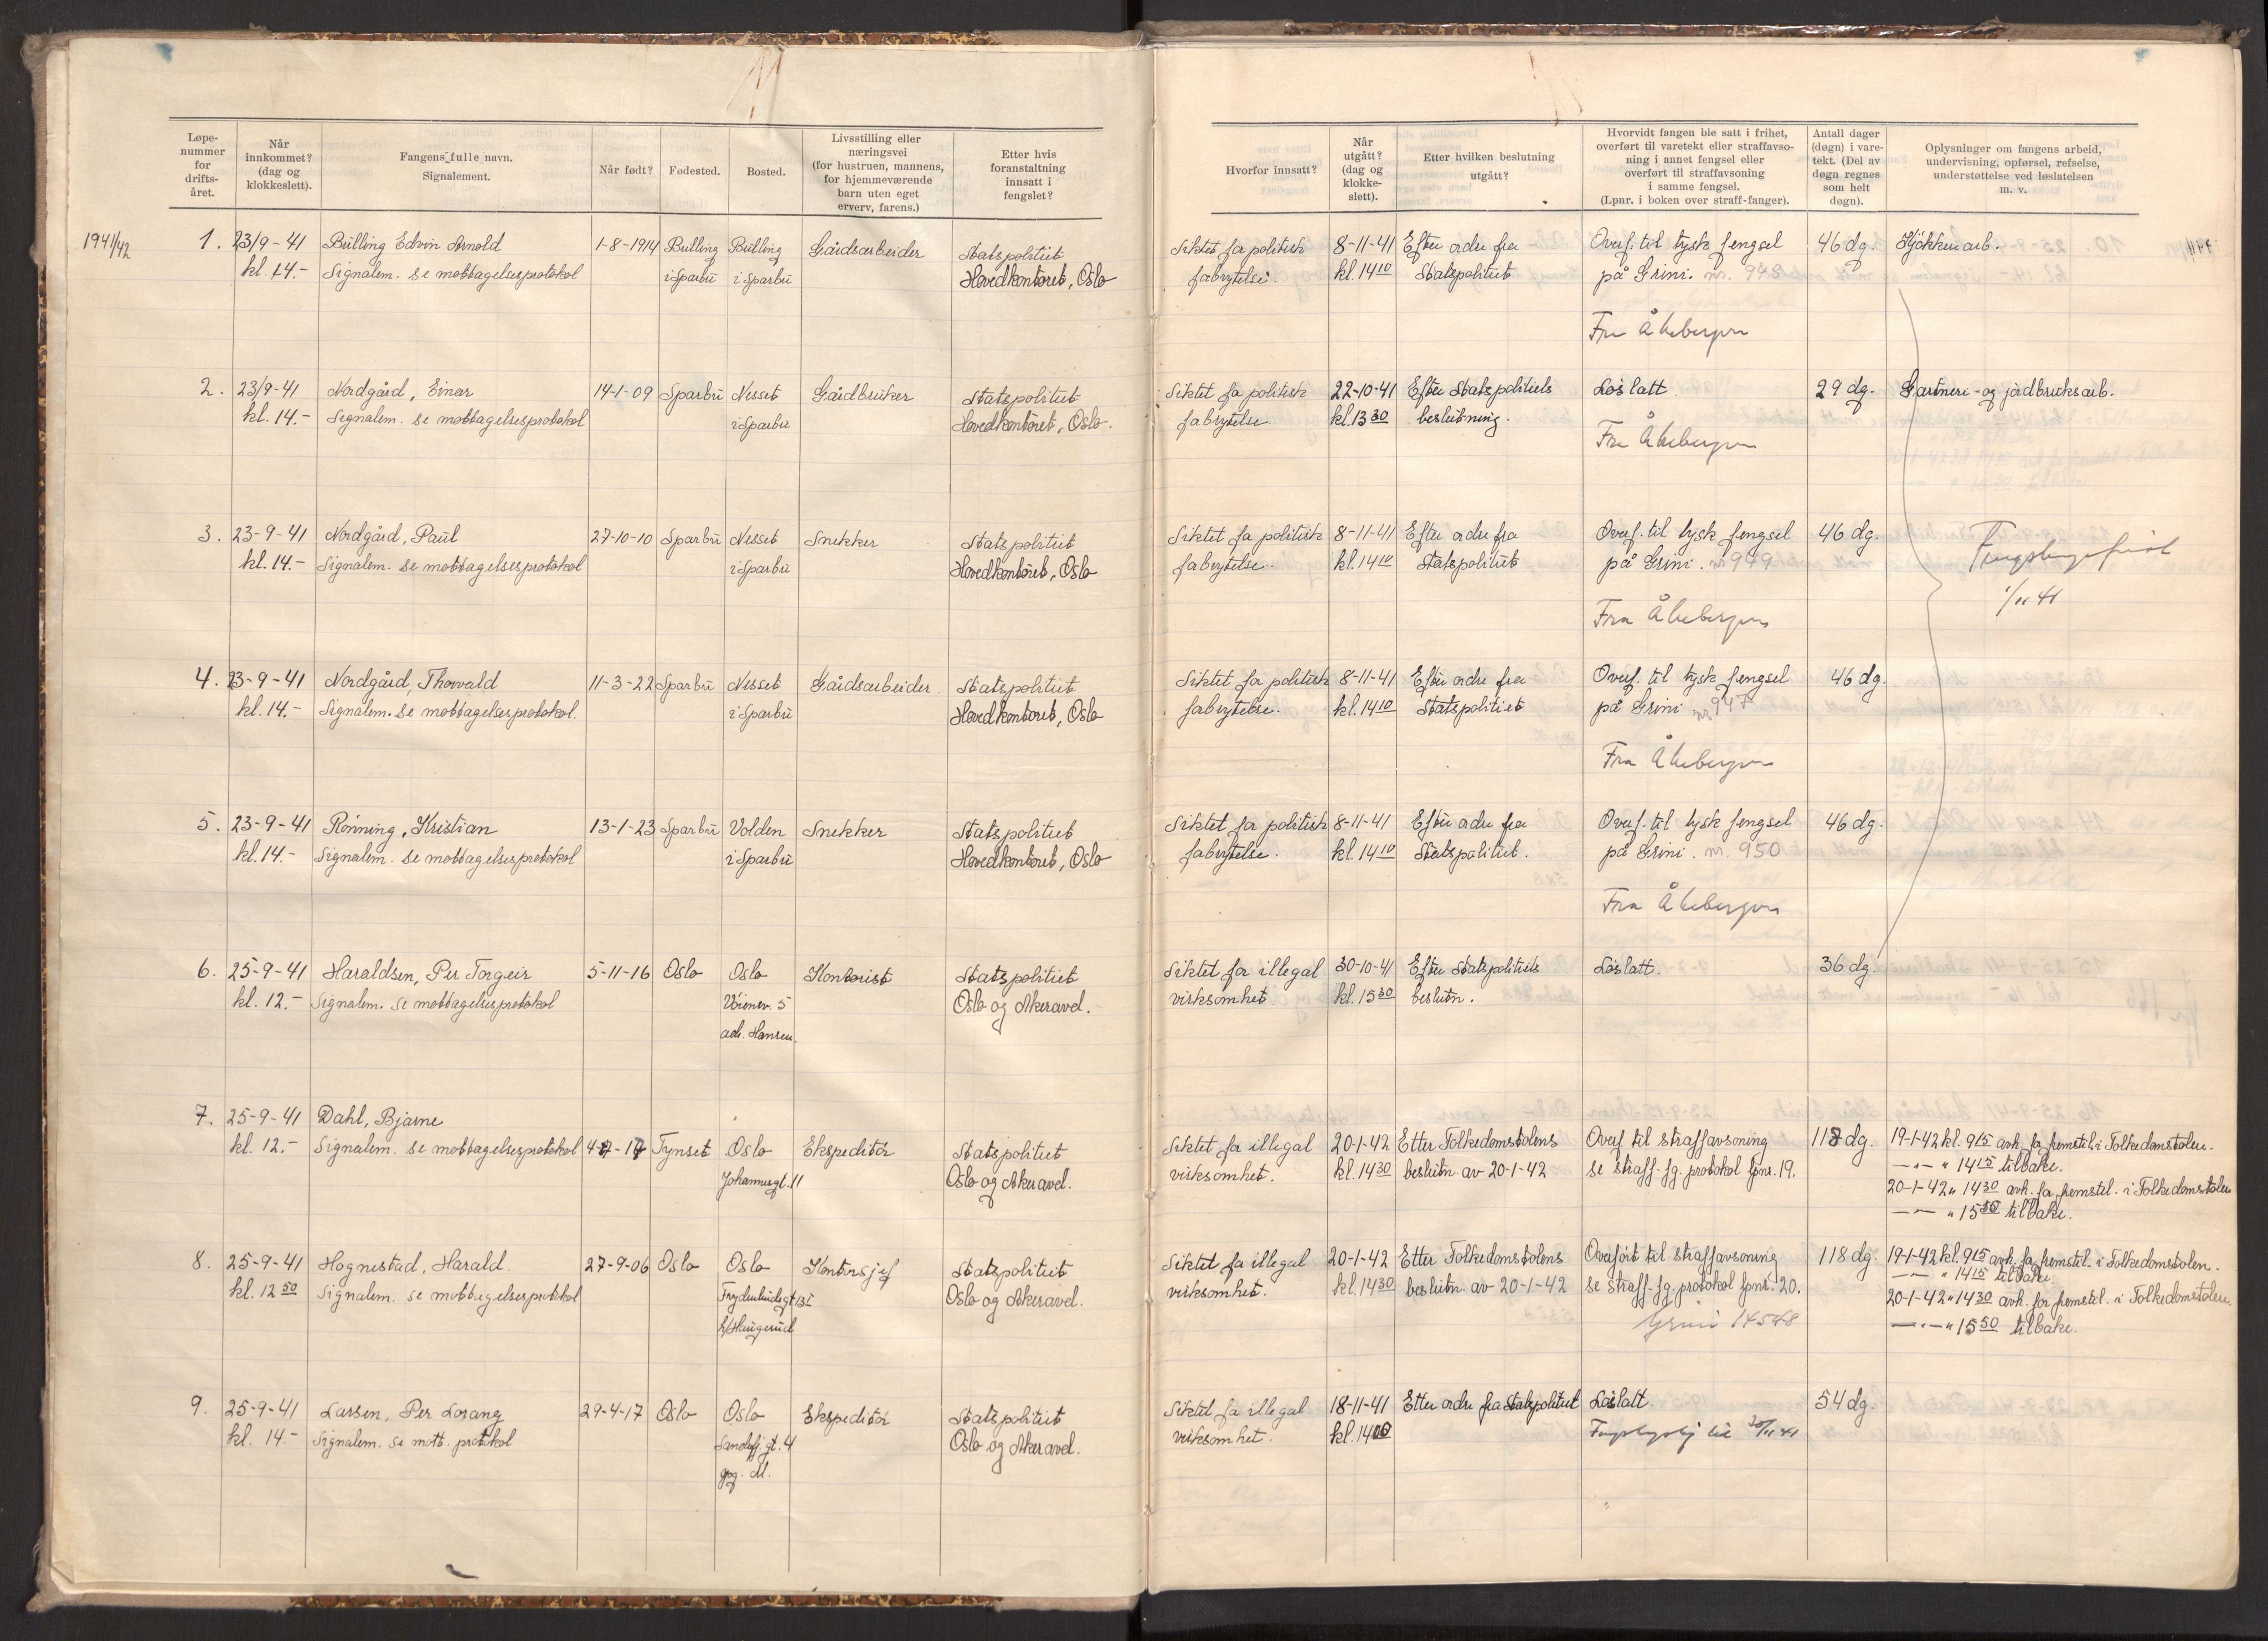 Løpe-
nummer
for
drifts-
året.
Når
innkommet?
(dag og
klokkeslett).
Fangens fulle navn.
Signalement.
Når født?
Fødested.
Bosted.
Livsstilling eller
næringsvei
(for hustruen, mannens,
for hjemmeværende
barn uten eget
erverv, farens.)
Etter hvis
foranstaltning
innsatt i
fengslet?
Hvorfor innsatt?
Når
utgått?
(dag og
klokke-
slett).
Etter hvilken beslutning
utgått?
Hvorvidt fangen ble satt i frihet,
overført til varetekt eller straffavso-
ning i annet fengsel eller
overført til straffavsoning
i samme fengsel.
(Lpnr. i boken over straff-fanger).
Antall dager
(døgn) i vare-
tekt. (Del av
døgn regnes
som helt
døgn).
Oplysninger om fangens arbeid,
undervisning, opførsel, refselse,
understøttelse ved løslatelsen
m. v.
1941/42
1. 23/9-41 Bulling Edvin Arnold 1-8-1914 Bulling Bulling Gårdsarbeider Statspolitiet Siktet for politisk 8-11-41 Efter ordre fra Overf. til tysk fengsel 46 dg. Kjøkkenarb.
kl. 14.- Signalem. se mottagelsesprotokol i Sparbu i Sparbu Hovedkontoret, Oslo forbrytelse. kl. 14 10 Statspolitiet på Grini. nr. 948
Fra Åkebergvn
2. 23/9-41 Nordgård, Einar 14-1-09 Sparbu Nesset Gårdbruker Statspolitiet Siktet for politisk 22-10-41 Efter Statspolitiets Løslatt. 29 dg. Gartneri- og jordbruksarb.
kl. 14.- Signalem. se mottagelsesprotokol i Sparbu Hovedkontoret, Oslo. forbrytelse. kl. 13 30 beslutning.
Fra Åkebergvn
3. 23-9-41 Nordgård, Paul 27-10-10 Sparbu Nesset Snekker Statspolitiet Siktet for politisk 8-11-41 Efter ordre fra Overf. til tysk fengsel 46 dg.
kl. 14.- Signalem. se mottagelsesprotokol i Sparbu Hovedkontoret, Oslo forbrytelse. kl. 14 10 Statspolitiet på Grini. nr 949
1/11 41
Fra Åkebergvn
4. 23-9-41 Nordgård, Thorvald 11-3-22 Sparbu Nesset Gårdsarbeider. Statspolitiet Siktet for politisk 8-11-41 Efter ordre fra Overf. til tysk fengsel 46 dg.
kl. 14.- Signalem. se mottagelsesprotokol. i Sparbu Hovedkontoret, Oslo forbrytelse. kl. 14 10 Statspolitiet på Grini nr 947
Fra Åkebergvn
5. 23-9-41 Rønning, Kristian 13-1-23 Sparbu Volden Snekker Statspolitiet Siktet for politisk 8-11-41 Efter ordre fra Overf. til tysk fengsel 46 dg.
kl. 14.- Signalem. se mottagelsesprotokol i Sparbu Hovedkontoret, Oslo forbrytelse. kl. 14 10 Statspolitiet. på Grini. nr. 950
Fra Åkebergvn
6. 25-9-41 Haraldsen, Per Torgeir 5-11-16 Oslo Oslo Kontorist Statspolitiet Siktet for illegal 30-10-41 Efter Statspolitiets Løslatt. 36 dg.
kl. 12.- Signalem. se mottagelsesprotokol Vøiensv. 5 Oslo og Akeravd. virksomhet kl. 15 30 beslutn.
adr. Hansen.
7. 25-9-41 Dahl, Bjarne
kl. 12.- Signalem. se mottagelsesprotokol Tynset Oslo Ekspeditør Statspolitiet Siktet for illegal 20-1-42 Etter Folkedomstolens Overf. til straffavsoning 118 dg. 19-1-42 kl. 9 15 avh. for fremstil. i Folkedomstolen.
Johannesgt. 11 Oslo og Akeravd. virksomhet. kl. 14 30 beslutn av 20-1-42 se straff-fg. protokol lpnr. 19. — " — " 14 15 tilbake.
20-1-42 " 14 30 avh. for fremstil. i Folkedomstolen
— " — " 15 50 tilbake.
8. 25-9-41 Hognestad, Harald. 27-9-06 Oslo Oslo Kontorsjef Statspolitiet Siktet for illegal 20-1-42 Etter Folkedomstolens Overført til straffavsoning 118 dg. 19-1-42 kl. 9 15 avh. for fremstil. i Folkedomstolen.
— " — " 14 15 tilbake.
kl. 12 50 Signalem. se mottagelsesprotokol Frydenlundsgt 13 I Oslo og Akeravd. virksomhet. kl. 14 30 beslutn av 20-1-42 se straff-fg. protokol lpnr. 20. 20-1-42 " 14 30 avh. for fremstil. i Folkedomstolen
h/Haugerud Grini 14548 — " — " 15 50 tilbake.
9. 25-9-41 Larsen, Per Lorang 29-4-17 Oslo Oslo Ekspeditør Statspolitiet Siktet for illegal 18-11-41 Etter ordre fra Statspolitiet Løslatt. 54 dg.
kl. 14.- Signalem. se mott. protokol Sandefj. gt. 4 Oslo og Akeravd. virksomhet. kl. 14 00 til 20/11 41
opg. M.